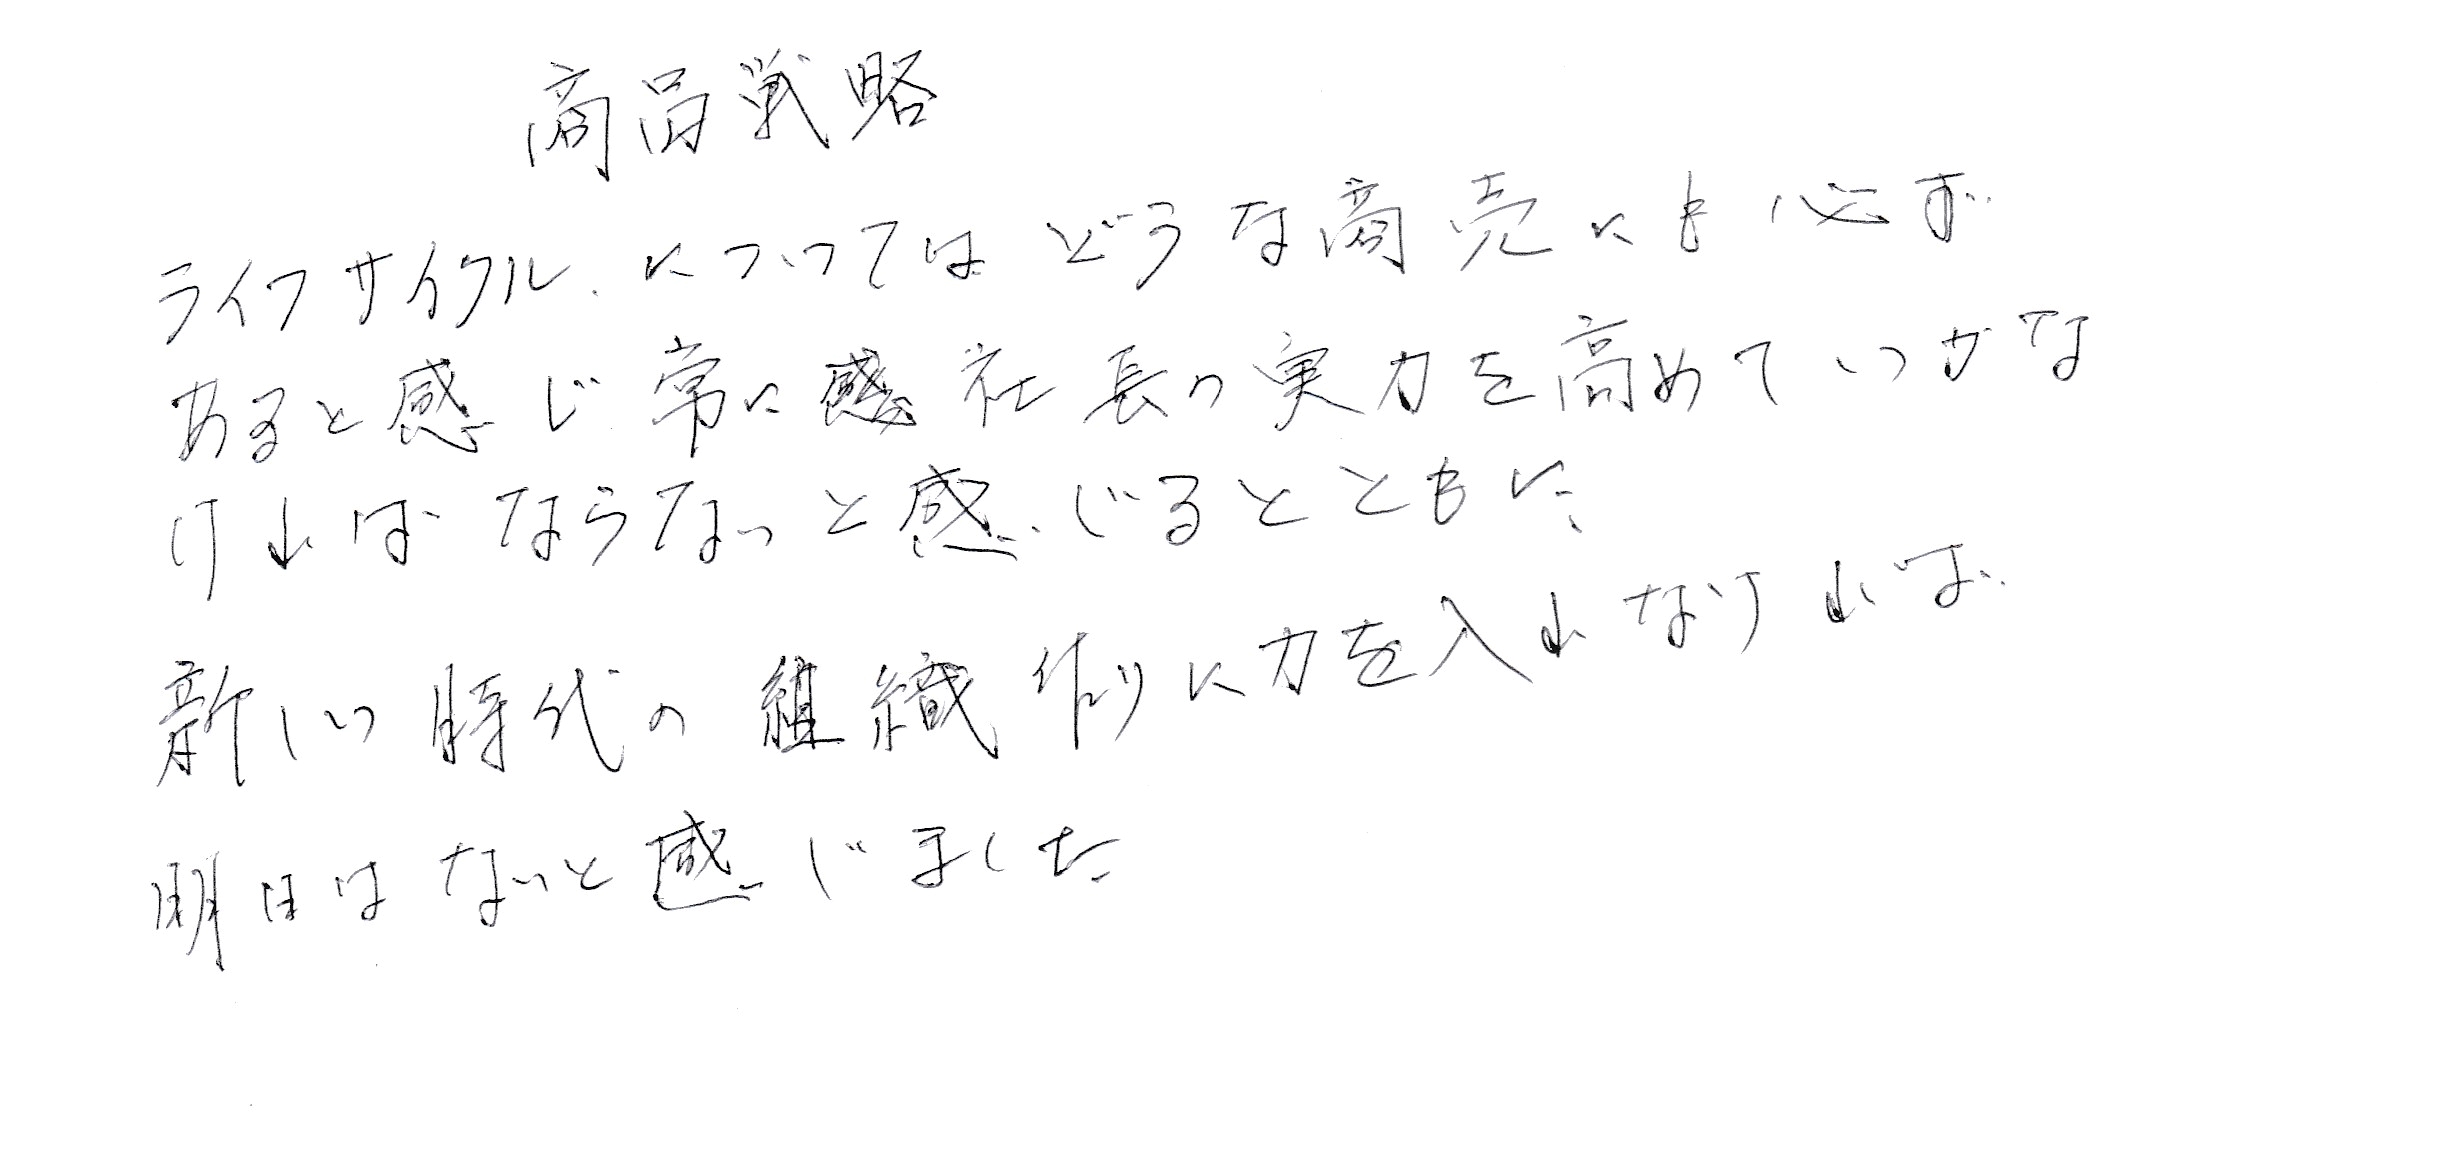 商品戦略
ライフサイクルについてはどうな商売にも必ず
あると感じ常に感社長の実力を高めていかな
ければならないと感じるとともに
新しい時代の組織作りに力を入れなければ
明日はないと感じました